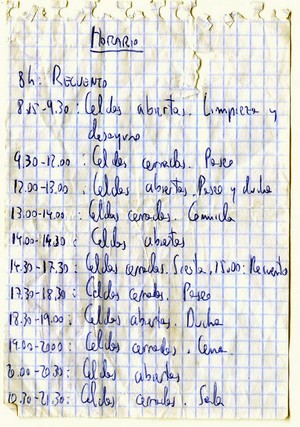 HORARIO
8h: RECUENTO
8.15-9.30: Celdas abiertas. Limpieza y
desayuno
9.30-12.00: Celdas cerradas. Paseo
12.00-13.00: Celdas abiertas. Paseo y ducha
13.00-14.00: Celdas cerradas. Comida
14.00-14.30: Celdas abiertas
14.30-17.30: Celdas cerradas. Siesta, 15.00: Recuento
17.30-18.30: Celdas cerradas. Paseo
18.30-19.00: Celdas abiertas. Ducha
19.00-20.00: Celdas cerradas. Cena
20.00-20.30: Celdas abiertas
20.30-21.30: Celdas cerradas. Sala